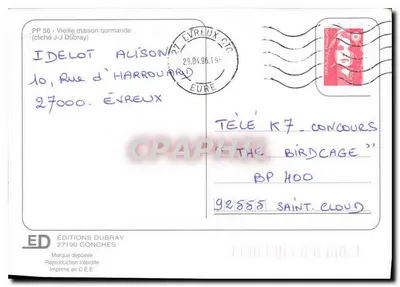 PP 56 - Vieille maison normande
(cliché J-J Dubray)
27 EVREUX CTC
29.04.96
EURE
IDELOT ALISON
10, Rue d'HARROUARD
27000. ÉVREUX
TÉLÉ K7 - CONCOURS
"THE BIRDCAGE"
BP 400
92555 SAINT. CLOUD
CPARAMA
ED
EDITIONS DUBRAY
27190 CONCHES
Marque déposée
Reproduction interdite
Imprimé en C.E.E